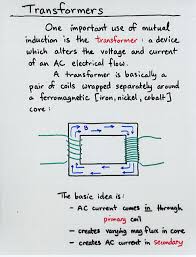 Transformers
One important use of mutual
induction is the transformer : a device
which alters the voltage and current
of an AC electrical flow.
A transformer is basically a
pair of coils wrapped separately around
a ferromagnetic [iron, nickel, cobalt]
core :
B
The basic idea is:
- AC current comes in through
primary coil
- creates varying mag flux in core
- creates AC current in secondary